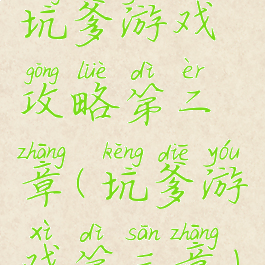 坑爹游戏
gōng lüè dì èr
攻略第二
zhāng kēng diē yóu
章(坑爹游
xì dì sān zhāng
戏第三章)